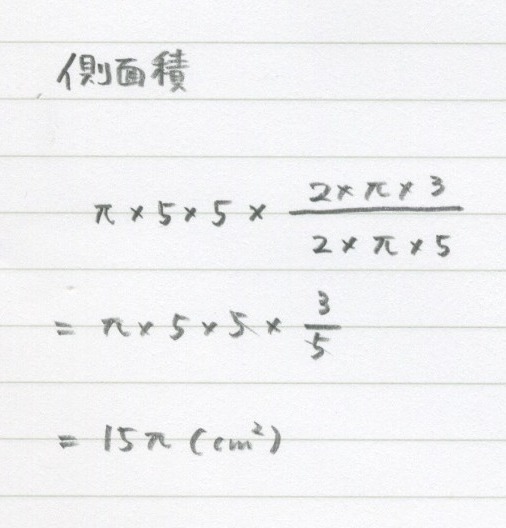 側面積
π × 5 × 5 × (2 × π × 3)/(2 × π × 5)
= π × 5 × 5 × 3/5
= 15π (cm²)